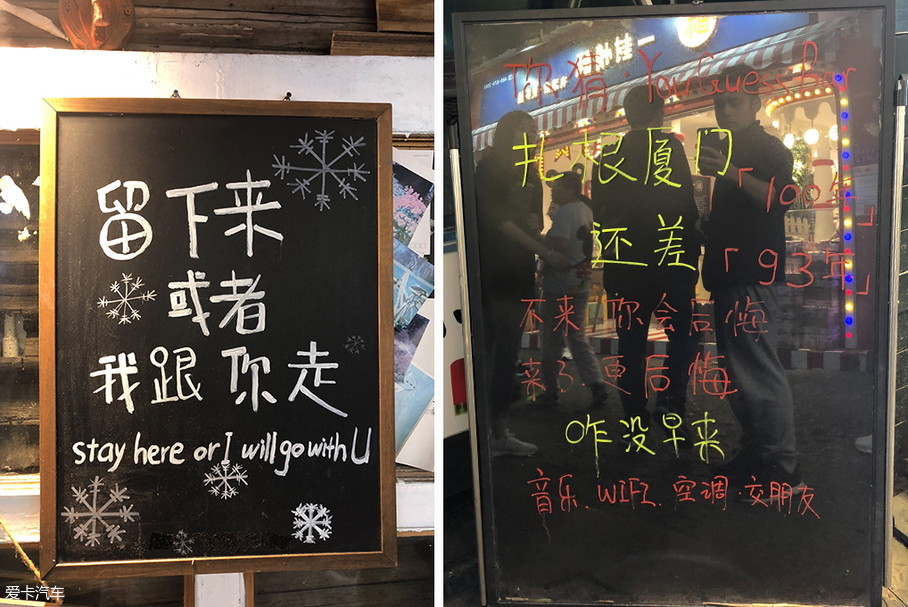 留下来
或者
我跟你走
stay here or I will go with U
你猜·You Guess Bar
扎根厦门「100年」
还差「93年」
不来,你会后悔
来了.更后悔
咋没早来
音乐.WIFI.空调.交朋友
爱卡汽车